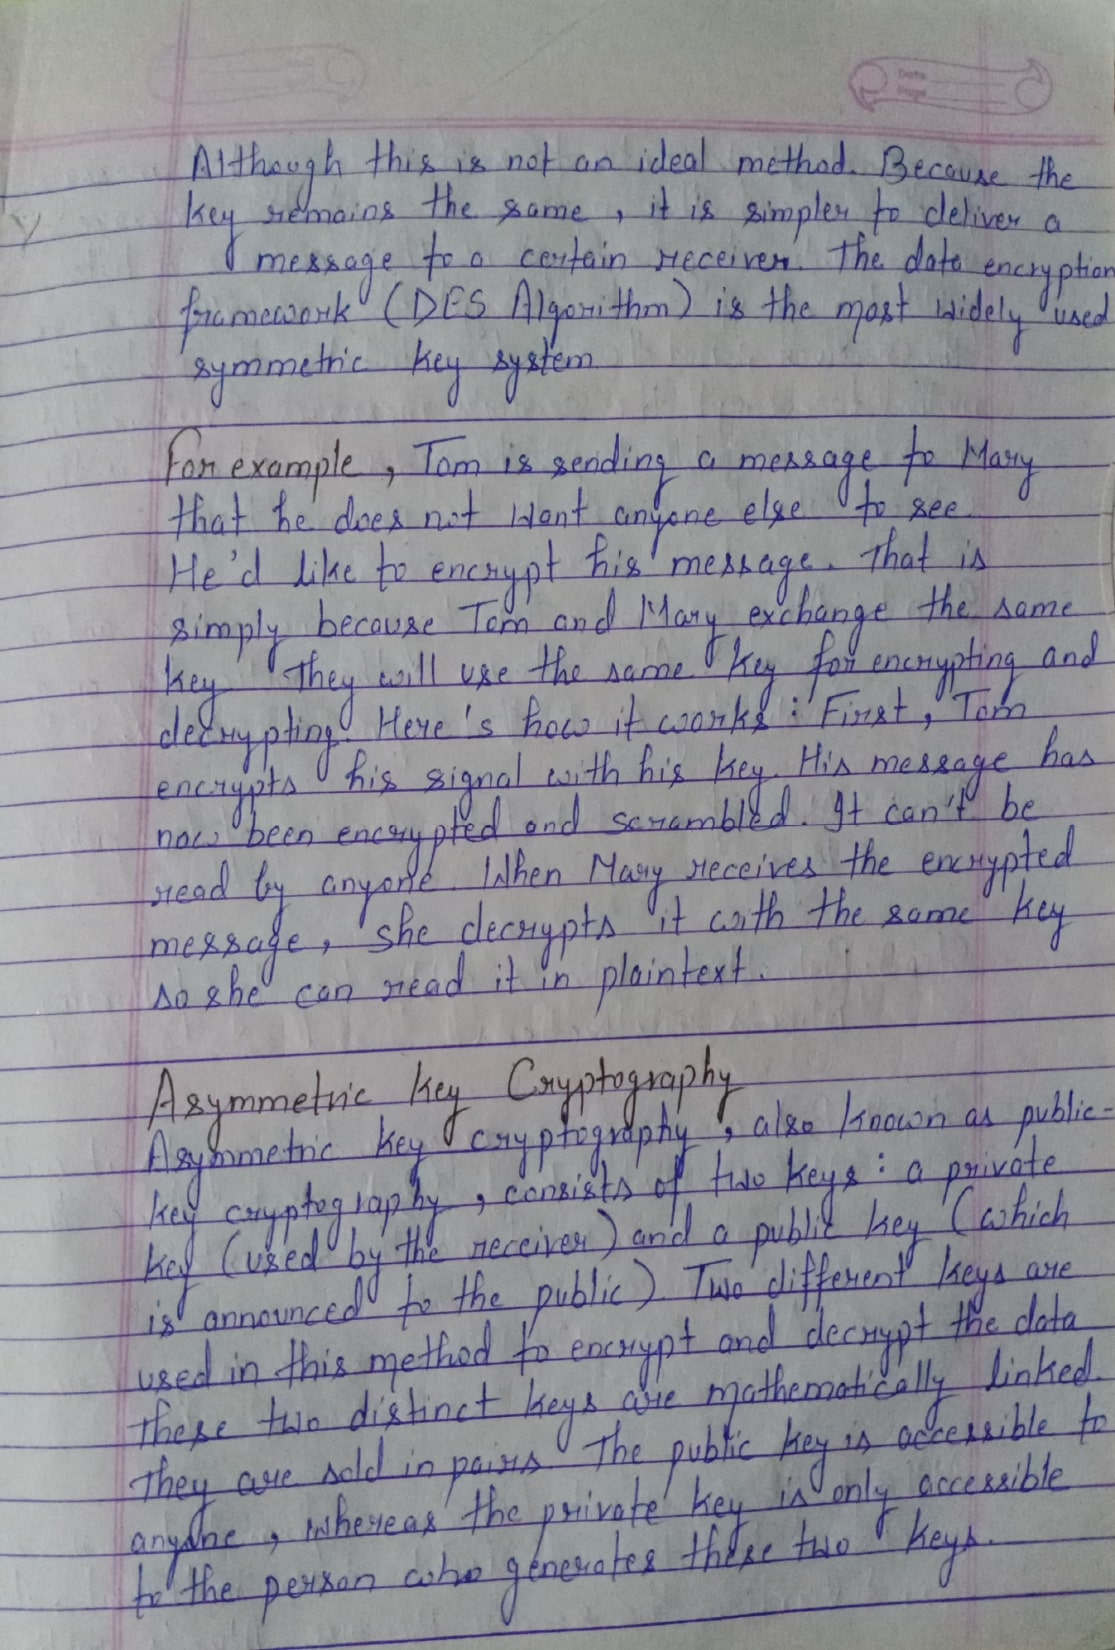 Date
Page
Although this is not an ideal method. Because the
key remains the same, it is simpler to deliver a
message to a certain receiver. The data encryption
framework (DES Algorithm) is the most widely used
symmetric key system
For example, Tom is sending a message to Mary
that he does not want anyone else to see.
He'd like to encrypt his message. That is
simply because Tom and Mary exchange the same
key. They will use the same key for encrypting and
decrypting. Here's how it works: First, Tom
encrypts his signal with his key. His message has
now been encrypted and scrambled. It can't be
read by anyone. When Mary receives the encrypted
message, she decrypts it with the same key
so she can read it in plaintext.
Asymmetric key Cryptography
Asymmetric key cryptography, also known as public-
key cryptography, consists of two keys: a private
key (used by the receiver) and a public key (which
is announced to the public). Two different keys are
used in this method to encrypt and decrypt the data
These two distinct keys are mathematically linked.
They are sold in pairs. The public key is accessible to
anyone, whereas the private key is only accessible
to the person who generates these two keys.